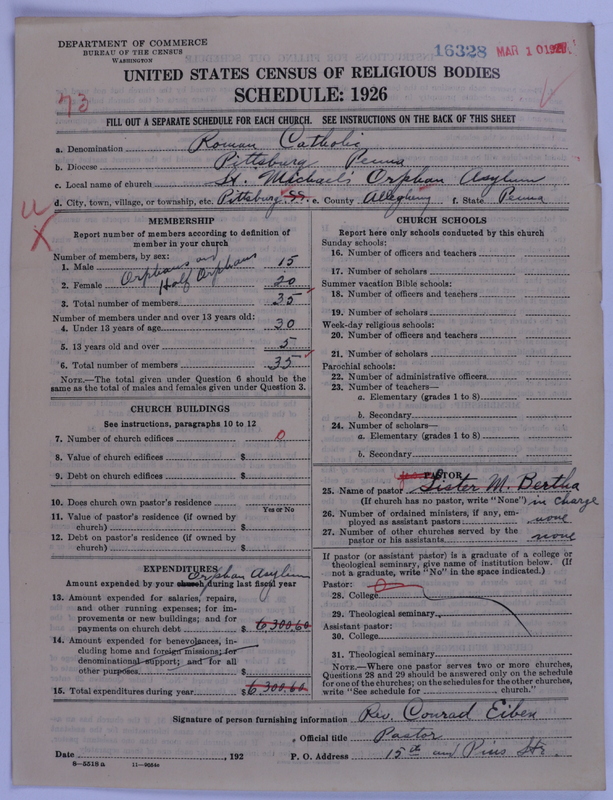 DEPARTMENT OF COMMERCE
BUREAU OF THE CENSUS
WASHINGTON
16328 MAR 10 192
UNITED STATES CENSUS OF RELIGIOUS BODIES
SCHEDULE: 1926
73
FILL OUT A SEPARATE SCHEDULE FOR EACH CHURCH. SEE INSTRUCTIONS ON THE BACK OF THIS SHEET
a. Denomination Roman Catholic
b. Diocese Pittsburg Penna
c. Local name of church St. Michael's Orphan Asylum
d. City, town, village, or township, etc. Pittsburg S.S. e. County Allegheny f. State Penna
MEMBERSHIP
Report number of members according to definition of
member in your church
Number of members, by sex:
1. Male 15
Orphans and
Half Orphans
2. Female 20
3. Total number of members 35
Number of members under and over 13 years old:
4. Under 13 years of age 30
5. 13 years old and over 5
6. Total number of members 35
NOTE.—The total given under Question 6 should be the
same as the total of males and females given under Question 3.
CHURCH BUILDINGS
See instructions, paragraphs 10 to 12
7. Number of church edifices 0
8. Value of church edifices $
9. Debt on church edifices $
10. Does church own pastor's residence
Yes or No
11. Value of pastor's residence (if owned by
church) $
12. Debt on pastor's residence (if owned by
church) $
EXPENDITURES
Orphan Asylum
Amount expended by your church during last fiscal year
13. Amount expended for salaries, repairs,
and other running expenses; for im-
provements or new buildings; and for
payments on church debt $ 6,300.60
14. Amount expended for benevolences, in-
cluding home and foreign missions; for
denominational support; and for all
other purposes $
15. Total expenditures during year $ 6,300.60
CHURCH SCHOOLS
Report here only schools conducted by this church
Sunday schools:
16. Number of officers and teachers
17. Number of scholars
Summer vacation Bible schools:
18. Number of officers and teachers
19. Number of scholars
Week-day religious schools:
20. Number of officers and teachers
21. Number of scholars
Parochial schools:
22. Number of administrative officers
23. Number of teachers—
a. Elementary (grades 1 to 8)
b. Secondary
24. Number of scholars—
a. Elementary (grades 1 to 8)
b. Secondary
PASTOR
25. Name of pastor Sister M. Bertha
(If church has no pastor, write "None") in Charge
26. Number of ordained ministers, if any, em-
ployed as assistant pastors none
27. Number of other churches served by the
pastor or his assistants none
If pastor (or assistant pastor) is a graduate of a college or
theological seminary, give name of institution below. (If
not a graduate, write "No" in the space indicated.)
Pastor:
28. College
29. Theological seminary
Assistant pastor:
30. College
31. Theological seminary
NOTE.—Where one pastor serves two or more churches,
Questions 28 and 29 should be answered only on the schedule
for one of the churches; on the schedules for the other churches,
write "See schedule for church."
Signature of person furnishing information Rev. Conrad Eiben
Official title Pastor
Date , 192 P. O. Address 15th and Pius Str.
8—5518 a 11—9054c